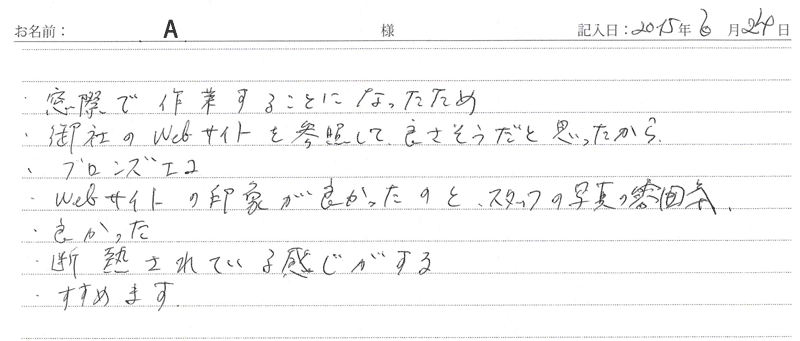 お名前： A 様 記入日：2015年6月24日
・窓際で作業することになったため
・御社のWebサイトを参照して、良さそうだと思ったから、
・ブロンズエコ
・Webサイトの印象が良かったのと、スタッフの写真の雰囲気、
・良かった
・断熱されている感じがする
・すすめます。